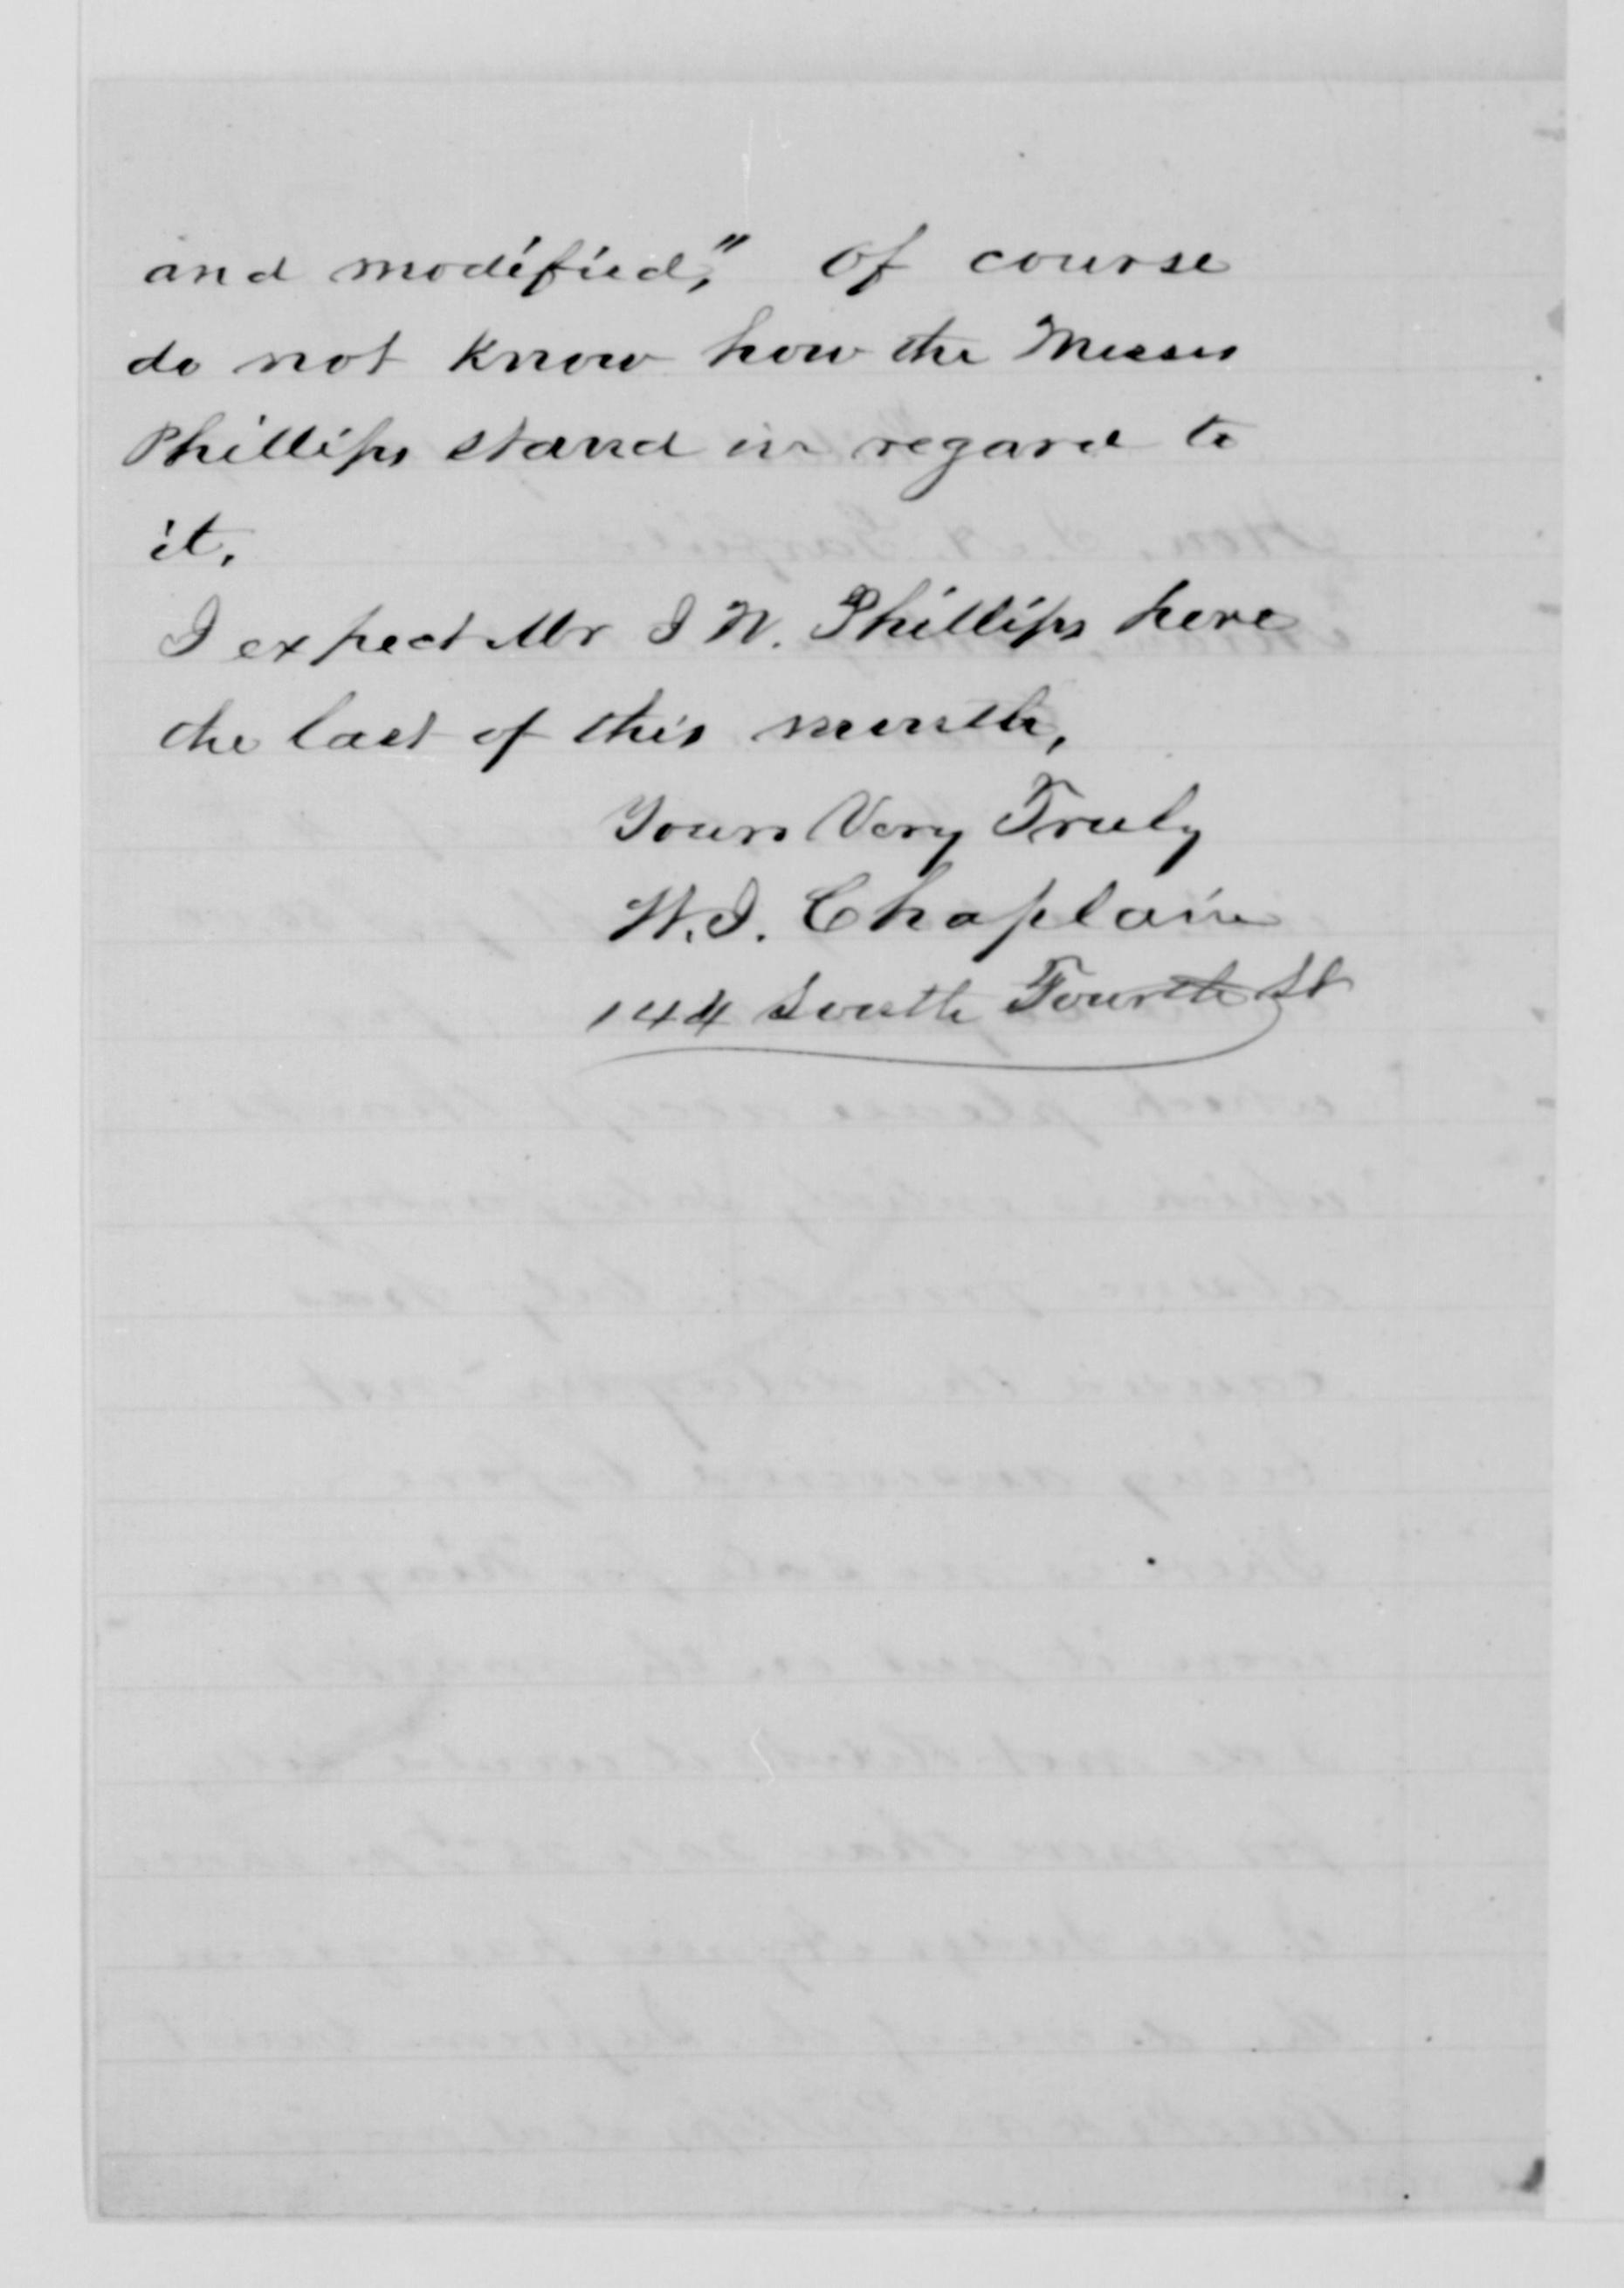 and modified," Of course
do not Know how the Messrs
Phillips stand in regard to
it.
I expect Mr I N. Phillips here
the last of this month,
Yours Very Truly
W. I. Chaplain
144 South Fourth St